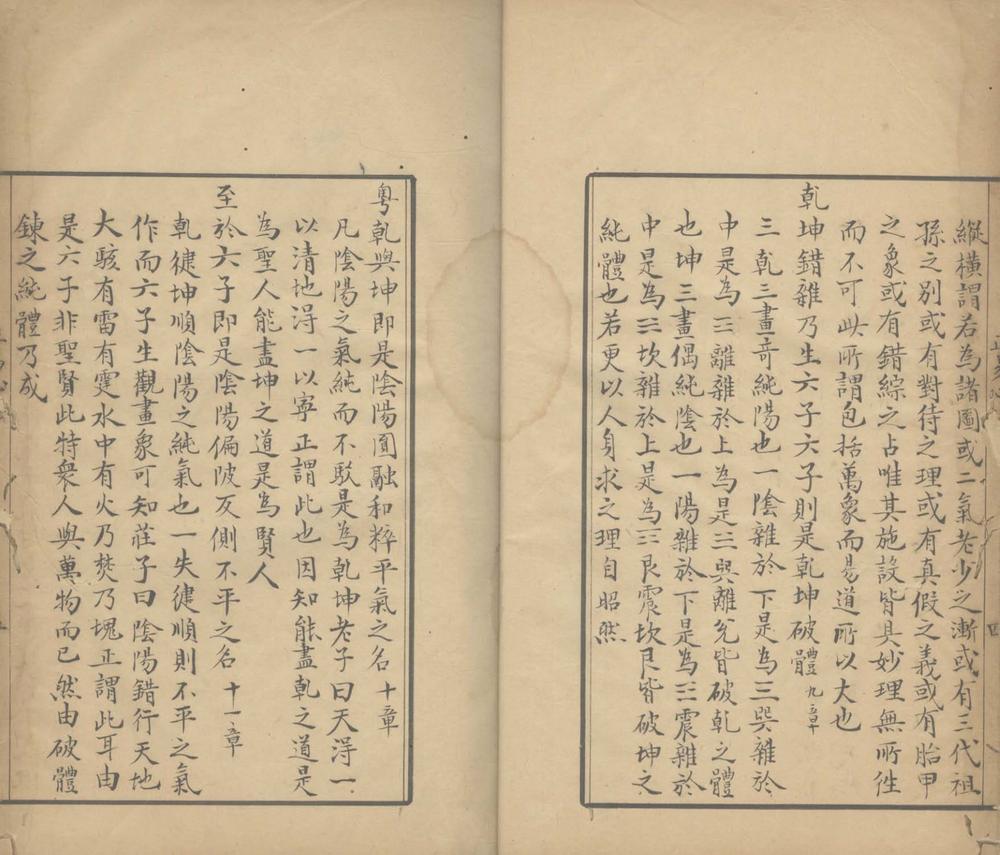 縱橫謂若為諸圖或二氣老少之漸或有三代祖
孫之別或有對待之理或有真假之義或有胎甲
之象或有錯綜之占唯其施設皆具妙理無所往
而不可此所謂包括萬象而易道所以大也
乾坤錯雜乃生六子六子則是乾坤破體九章
三乾三畫奇純陽也一陰雜於下是為☴巽雜於
中是為☲離雜於上為是☱與離兌皆破乾之體
也坤三畫偶純陰也一陽雜於下是為☳震雜於
中是為☵坎雜於上是為☶艮震坎艮皆破坤之
純體也若更以人身求之理自昭然
粵乾與坤即是陰陽圓融和粹平氣之名十章
凡陰陽之氣純而不駁是為乾坤老子曰天淂一
以清地淂一以寧正謂此也因知能盡乾之道是
為聖人能盡坤之道是為賢人
至於六子即是陰陽偏陂反側不平之名十一章
乾徤坤順陰陽之純氣也一失徤順則不平之氣
作而六子生觀畫象可知莊子曰陰陽錯行天地
大駭有雷有霆水中有火乃焚乃塊正謂此耳由
是六子非聖賢此特衆人與萬物而已然由破體
鍊之純體乃成